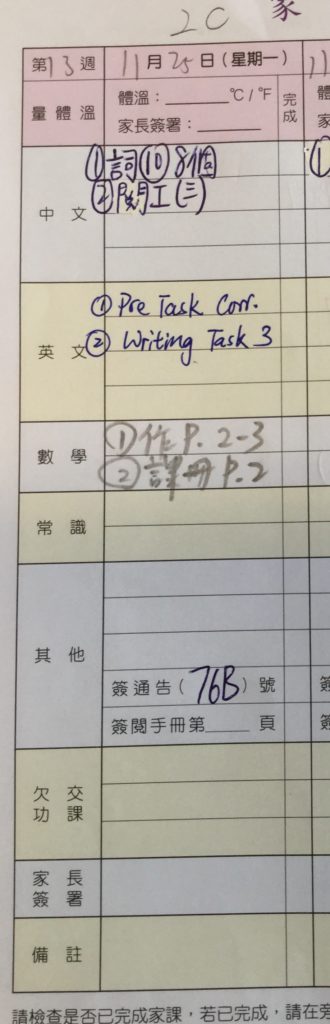 2C 家
第13週 11月25日(星期一) 11
量體溫 體溫：_____ °C/°F 完成
家長簽署：_____
中文 ①詞(10) 8個 ①
②閱工(三)
英文 ① Pre Task Corr.
② Writing Task 3
數學 ①作P. 2-3
②課冊P.2
常識
其他
簽通告(76B)號
簽閱手冊第____頁
欠交功課
家長簽署
備註
請檢查是否已完成家課，若已完成，請在旁